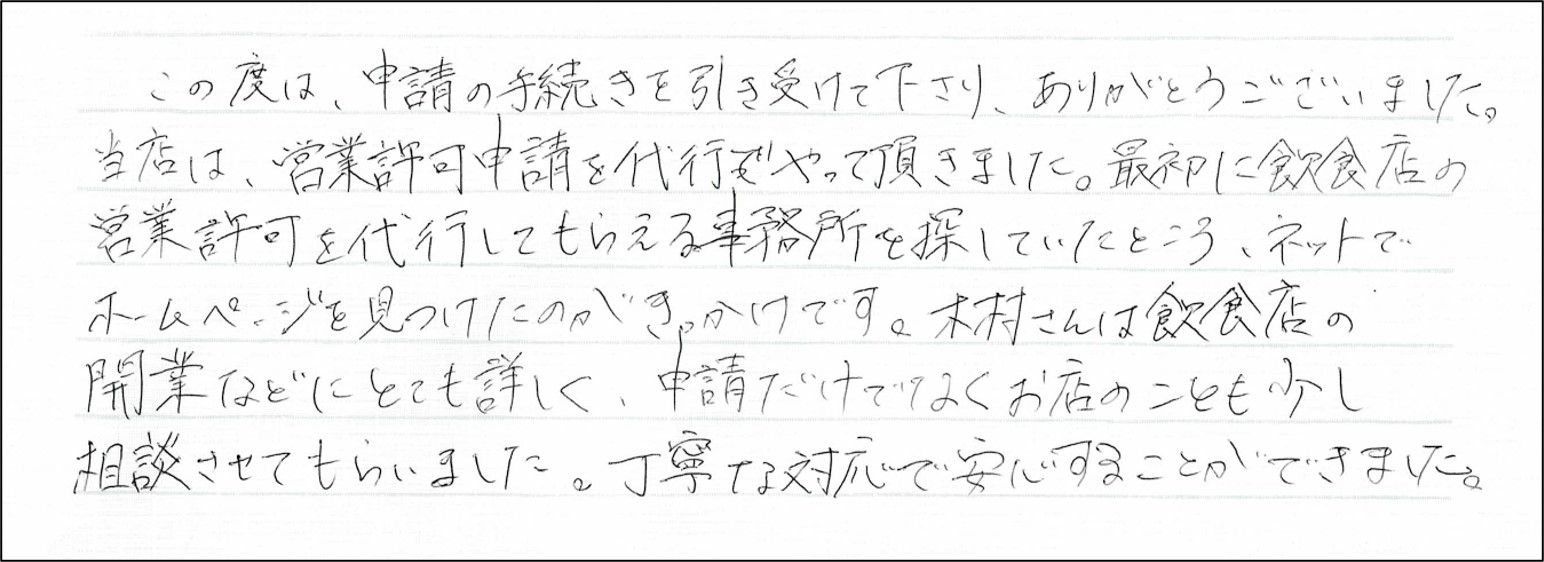 この度は、申請の手続きを引き受けて下さり、ありがとうございました。
当店は、営業許可申請を代行でやって頂きました。最初に飲食店の
営業許可を代行してもらえる事務所を探していたところ、ネットで
ホームページを見つけたのがきっかけです。木村さんは飲食店の
開業などにとても詳しく、申請だけでなくお店のことも少し
相談させてもらいました。丁寧な対応で安心することができました。